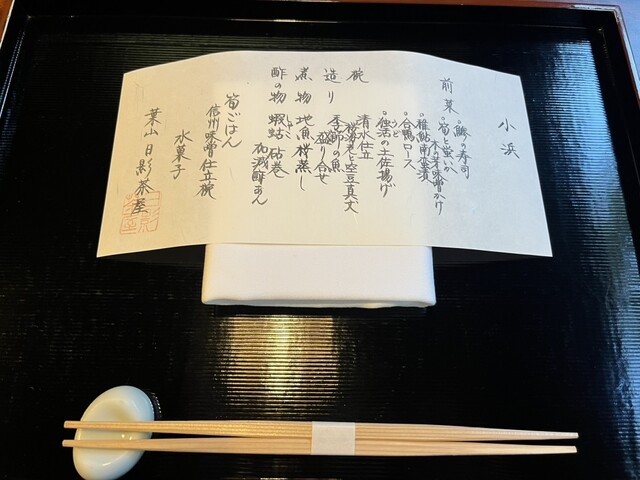 小浜
前菜 ○鯵の寿司
○筍と蛍いか
木の芽味噌かけ
○稚鮎南蛮漬
○合鴨ロース
○独活の土佐揚げ
うど
椀 清水仕立
桜海老と空豆真丈
造り 季節の魚
盛り合せ
煮物 地魚桜蒸し
酢の物 蝦蛄砧巻
しゃこ
加減酢あん
筍ごはん
信州味噌仕立椀
水菓子
葉山 日影茶屋
日影茶屋